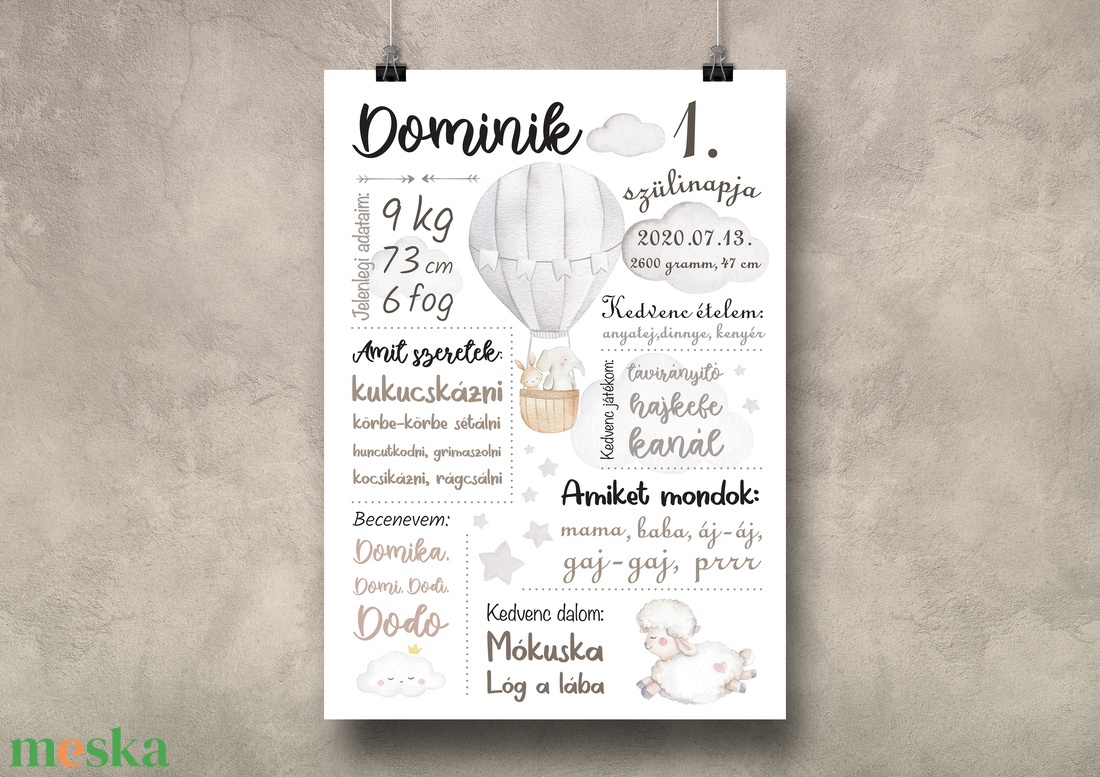 Dominik
1.
szülinapja
2020.07.13.
2600 gramm, 47 cm
Jelenlegi adataim:
9 kg
73 cm
6 fog
Kedvenc ételem:
anyatej,dinnye, kenyér
Amit szeretek:
kukucskázni
körbe-körbe sétálni
huncutkodni, grimaszolni
kocsikázni, rágcsálni
Kedvenc játékom:
távirányító
hajkefe
kanál
Amiket mondok:
mama, baba, áj-áj,
gaj-gaj, prrr
Becenevem:
Domika,
Domi, Dodi,
Dodo
Kedvenc dalom:
Mókuska
Lóg a lába
meska